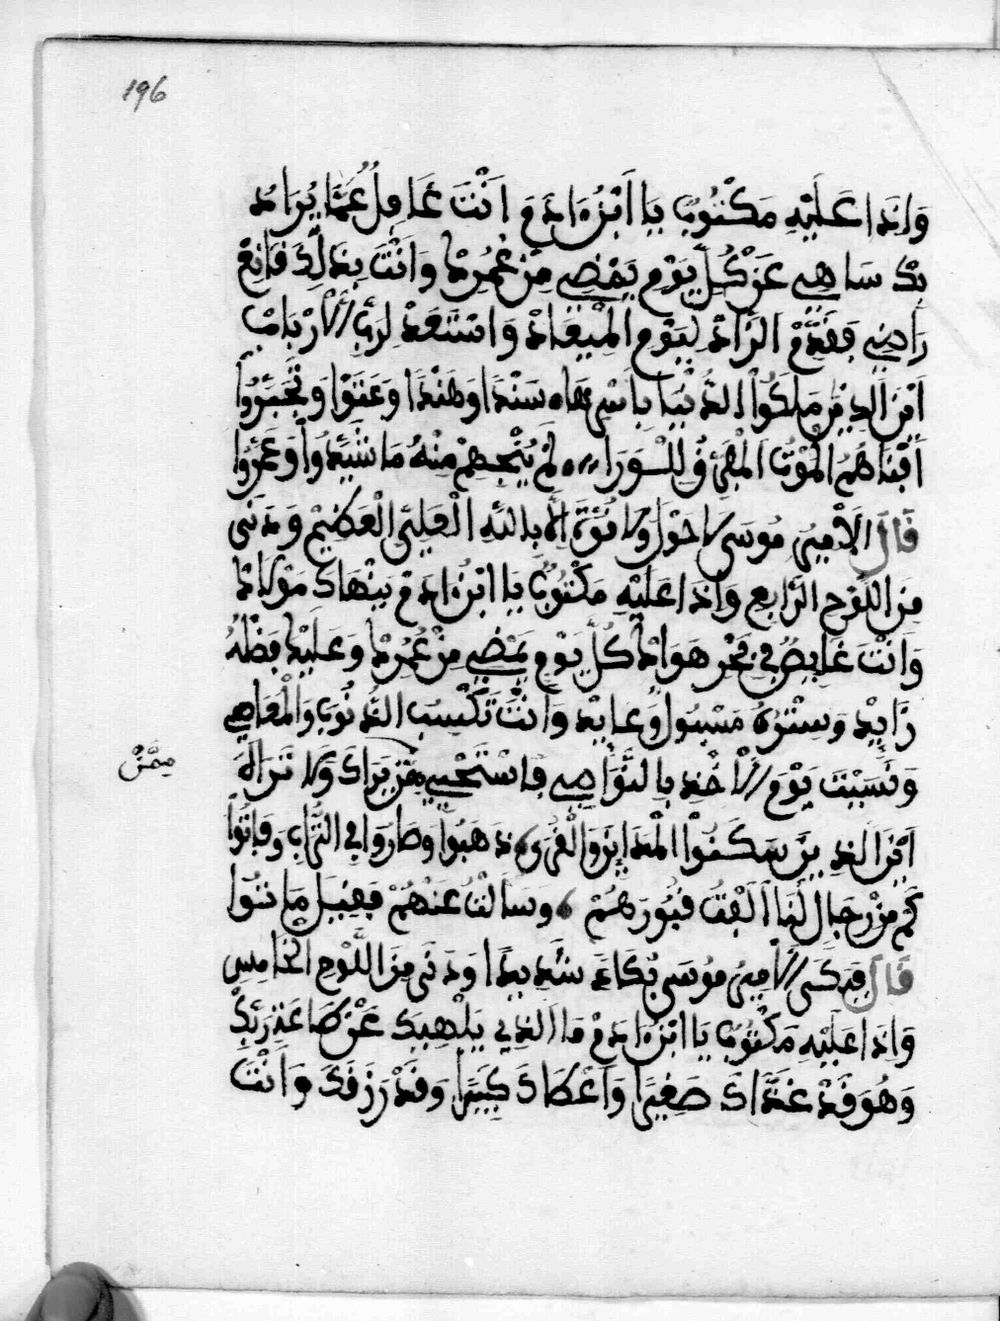 196
وَاِذَا عَلَيْهِ مَكْتُوبٌ يَا اَبْنَ ءَادَمَ اَنْتَ غَافِلُ عُمَّا يُرَادُ
بِكَ سَاهِي عَنْ كُلِّ يَوْمٍ يَمْضِي مِنْ عُمُرِكَ وَاَنْتَ بِذَلِكَ فَانِعْ
رَاضِي فَقَدِّمْ الزَّادْ لِيَوْمِ الْمِيعَادْ وَاسْتَعَدْ لِرَبِّ الْأَرْبَابْ
اَيْنَ الَّذِينَ مَلَكُوا الدُّنْيَا بِأَسْرِهَا سَنْدًا وَهَنْدًا وَعَتَوْا وَتَجَبَّرُوا
اَفْنَاهُمُ الْمَوْتُ الْمُفَرِّقُ لِلْوَرَا لَمْ يُنْجِهِمْ مِنْهُ مَا شَيَّدُوا وَعَمَّرُوا
قَالَ الْأَمِينُ مُوسَى لَا حَوْلَ وَلَا قُوَّةَ إِلَّا بِاللَّهِ الْعَلِيِّ الْعَظِيمْ وَدَنَى
مِنَ اللَّوْحِ الرَّابِعِ وَاِذَا عَلَيْهِ مَكْتُوبٌ يَا ابْنَ ءَادَمَ يَنْهَاكَ مَوْلَاكَ
وَاَنْتَ غَايِصٌ فِي بَحْرِ هَوَاكَ كُلَّ يَوْمٍ يَمْضِي مِنْ عُمُرِكَ وَعَلَيْكَ فَضْلُهُ
زَايِدْ وَسِتْرُهُ مَسْبُولٌ وَعَايِدْ وَاَنْتَ تَكْسِبُ الذُّنُوبَ وَالْمَعَاصِي
وَنَسَيْتَ يَوْمَ الْأَخْذِ بِالنَّوَاصِي فَاسْتَحْيِي مِمَّنْ يَرَاكَ وَلَا تَرَاهُ
مِمَّنْ
اَيْنَ الَّذِينَ سَكَنُوا الْمَدَايِنَ وَالْقُرَى ذَهَبُوا وَصَارَوا فِي التُّرَابِ وَفَاتُوا
كَمْ مِنْ رِجَالٍ لَنَا اَلْفِتُ قُبُورَهُمْ وَسَأَلْتُ عَنْهُمْ فَقِيلَ مَاتُوا
قَالَ فَبَكَى الْأَمِينُ مُوسَى بُكَاءً شَدِيدًا وَدَنَى مِنَ اللَّوْحِ الْخَامِسِ
وَاِذَا عَلَيْهِ مَكْتُوبٌ يَا ابْنَ ءَادَمْ مَا الَّذِي يَلْهِيكَ عَنْ طَاعَةِ رَبِّكْ
وَهُوَ قَدْ غَذَّاكَ صَغِيرًا وَاَعْطَاكَ كَبِيرًا وَقَدْ رَزَقَكَ وَاَنْتَ